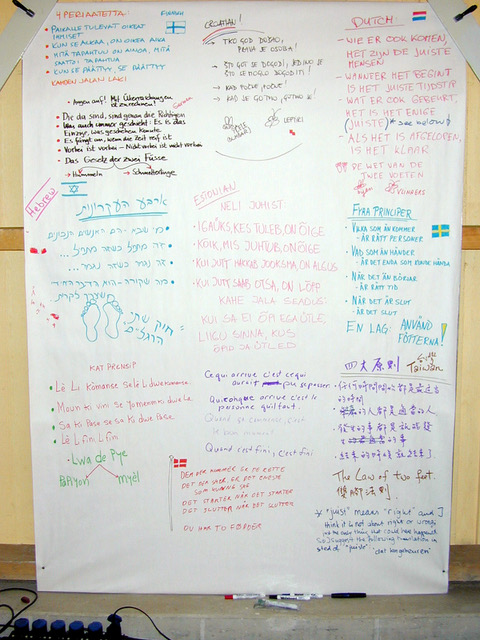 4 PERIAATETTA:
FINNISH
PAIKALLE TULEVAT OIKEAT
IHMISET
KUN SE ALKAA, ON OIKEA AIKA
MITÄ TAPAHTUU ON AINOA, MITÄ
SAATTOI TAPAHTUA
KUN SE PÄÄTTYY, SE PÄÄTTYY
KAHDEN JALAN LAKI
Augen auf! Mit Überraschungen
ist zu rechnen!
German
Die da sind, sind genau die Richtigen
Was auch immer geschieht: Es ist das
Einzige, was geschehen konnte
Es fängt an, wenn die Zeit reif ist
Vorbei ist vorbei - Nicht vorbei ist nicht vorbei
Das Gesetz der zwei Füsse
Hummeln Schmetterlinge
CROATIAN!
TKO GOD DOĐE,
PRAVA JE OSOBA!
ŠTO GOD SE DOGODI, JEDINO JE
ŠTO SE MOGLO DOGODITI!
KAD POČNE, POČNE!
KAD JE GOTOVO, GOTOVO JE!
LEPTIRI
DUTCH
WIE ER OOK KOMEN,
HET ZIJN DE JUISTE
MENSEN
WANNEER HET BEGINT
IS HET JUISTE TIJDSTIP
WAT ER OOK GEBEURT,
HET IS HET ENIGE
(JUISTE) * see below
ALS HET IS AFGELOPEN,
IS HET KLAAR
DE WET VAN DE
TWEE VOETEN
VLINDERS
Hebrew
ארבע העקרונות
חוק שתי
הרגליים
ESTONIAN
NELI JUHIST
IGAÜKS KES TULEB, ON ÕIGE
KÕIK, MIS JUHTUB, ON ÕIGE
KUI JUTT HAKKAB JOOKSMA, ON ALGUS
KUI JUTT SAAB OTSA, ON LÕPP
KAHE JALA SEADUS:
KUI SA EI ÕPI EGA ÜTLE
LIIGU SINNA, KUS
ÕPID JA ÜTLED
FYRA PRINCIPER
VILKA SOM ÄN KOMMER
- ÄR RÄTT PERSONER
VAD SOM ÄN HÄNDER
- ÄR DET ENDA SOM KUNDE HÄNDA
NÄR DET ÄN BÖRJAR
- ÄR RÄTT TID
NÄR DET ÄR SLUT
- ÄR DET SLUT
EN LAG: ANVÄND
FÖTTERNA!
KAT PRENSIP
Lè Li kòmanse se lè Li dwe kòmanse
Moun ki vini se yo menm ki dwe la
Sa ki pase se sa ki dwe pase
Lè L fini L fini
Lwa de Pye
Papiyon Myèl
Ce qui arrive c'est ce qui
aurait pu se passer
Quiconque arrive c'est la
personne qu'il faut.
Quand ça commence, c'est
le bon moment
Quand c'est fini, c'est fini
DEM DER KOMMER ER DE RETTE
DET DER SKER, ER DET ENESTE
SOM KUNNE SKE
DET STARTER NÅR DET STARTER
DET SLUTTER NÅR DET SLUTTER
DU HAR TO FØDDER
四大原則
Taiwan
任何時間開始都是最適合
的時間
來的人都是適合的人
結束的時候就結束了.
The Law of two feet.
雙腳法則.
* "juist" means "right" and I
think it is not about right or wrong,
just the only thing that could have happened
So I suggest the following translation in
stead of "juiste":